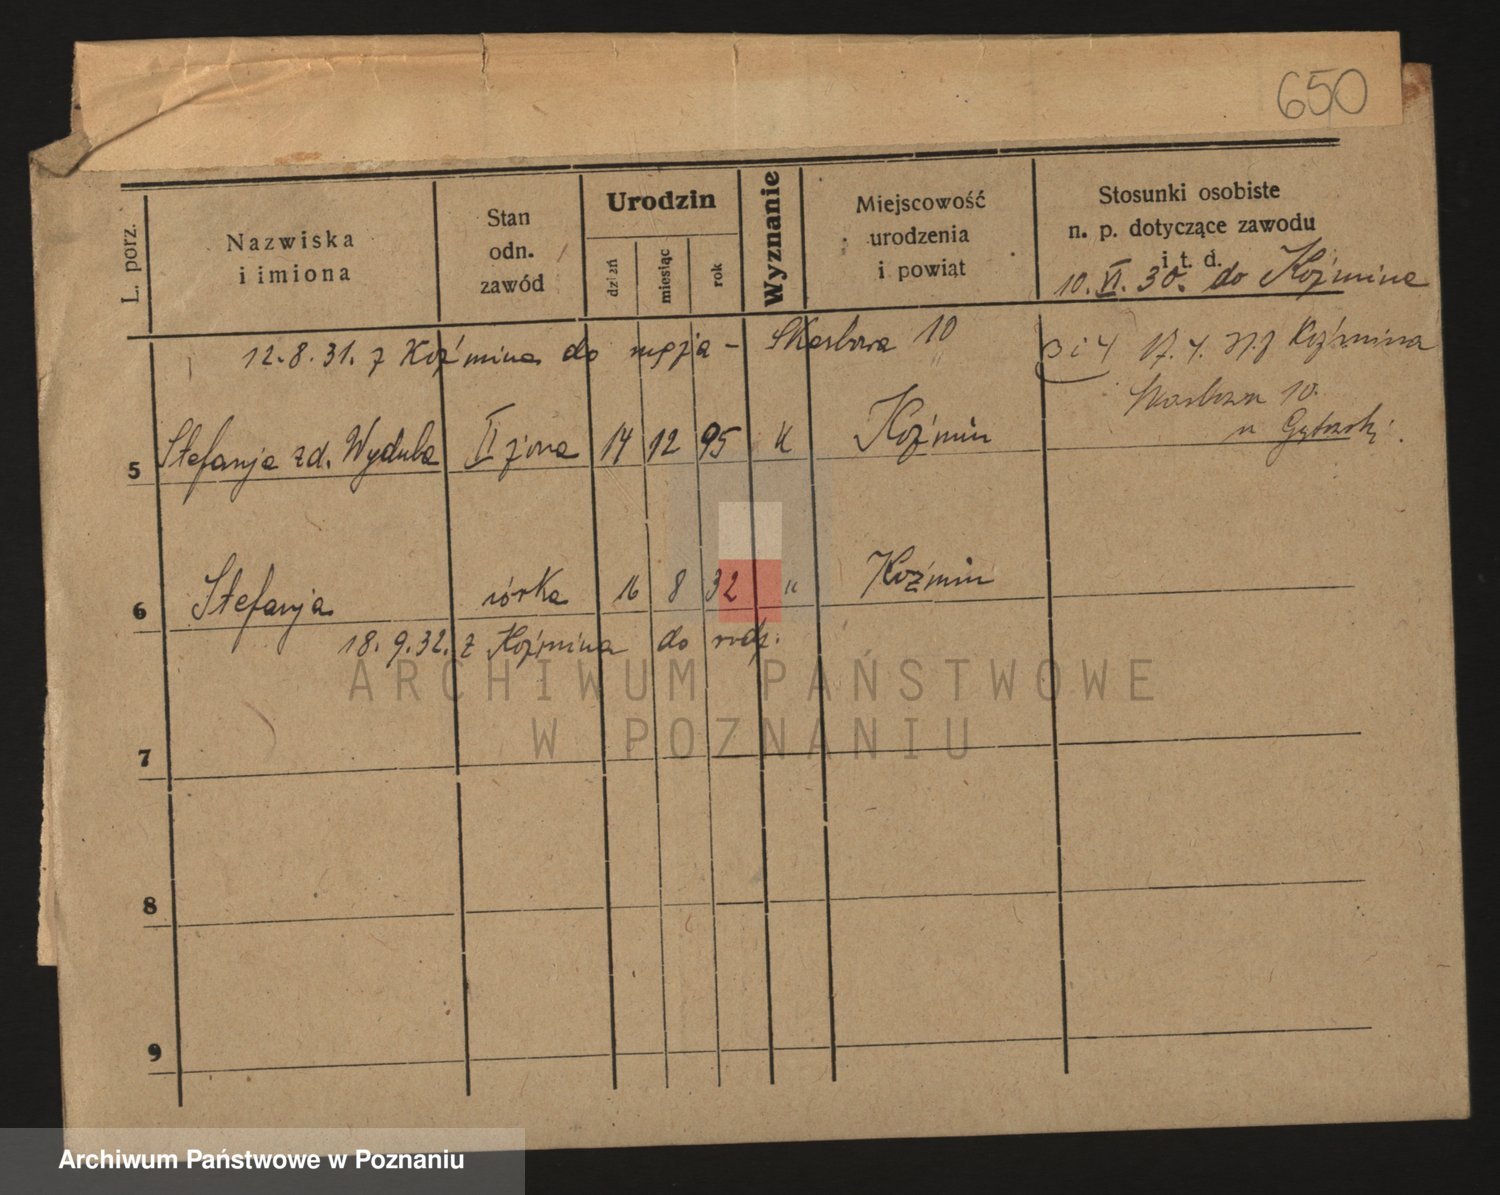 650
L. porz.
Nazwiska
i imiona
Stan
odn.
zawód
Urodzin
dzień
miesiąc
rok
Wyznanie
Miejscowość
urodzenia
i powiąt
Stosunki osobiste
n. p. dotyczące zawodu
i t. d.
10. VI. 30. do Koźmina
12.8.31. z Koźmina do męża - Skarbowa 10
3 i 4 17.4. Koźmina
Skarbowa 10.
u
5 Stefanja zd. Wyduba II żona 14 12 95 K Koźmin
6 Stefanja córka 16 8 32 " Koźmin
18.9.32. z Koźmina do rodz.
ARCHIWUM PAŃSTWOWE
W POZNANIU
7
8
9
Archiwum Państwowe w Poznaniu